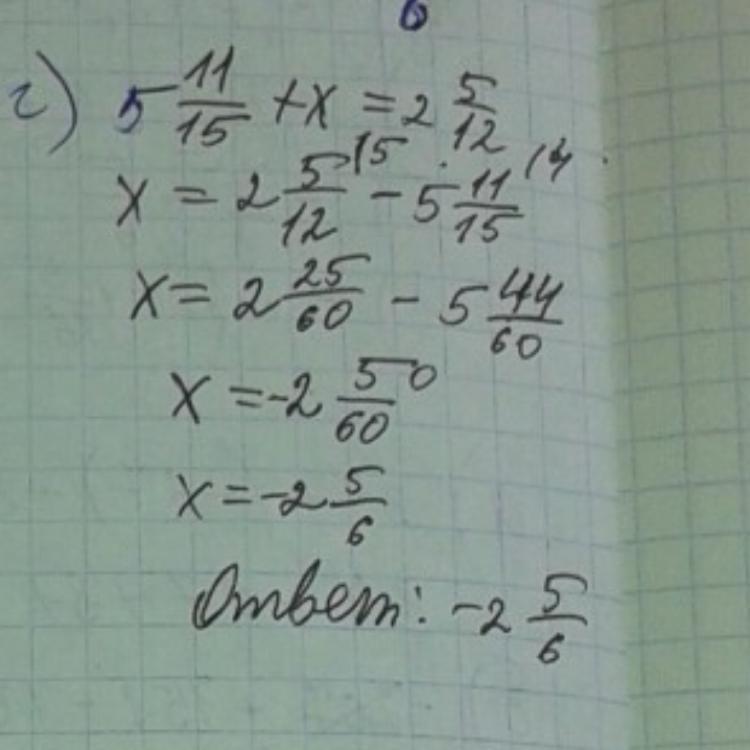 6
г) 5 11/15 + x = 2 5/12
x = 2 5/12 ⁾⁵ - 5 11/15 ⁽⁴
x = 2 25/60 - 5 44/60
x = -2 50/60
x = -2 5/6
Ответ: -2 5/6